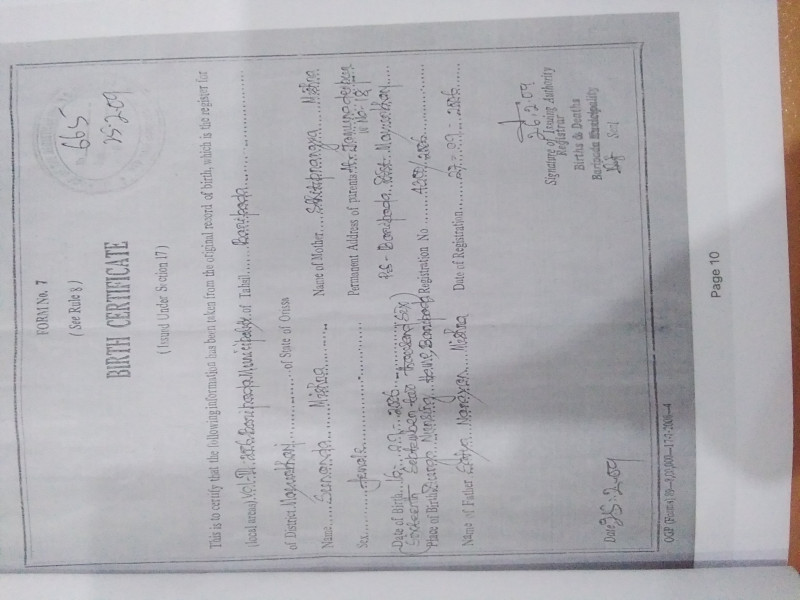 FORM No. 7
( See Rule 8 )
665
25-2-09
BIRTH CERTIFICATE
( Issued Under Section 17 )
This is to certify that the following information has been taken from the original record of birth, which is the register for
(local area) Baripada Municipality of Tahsil Baripada
of District Mayurbhanj of State of Orissa
Name Sunanda Mishra
Name of Mother Mishra
Sex female
Permanent Address of parents At- Jamunadeshpur
W No: 18
Date of Birth 16. 09. 2006
PS - Baripada Dist- Mayurbhanj
Sixteenth September two thousand Six
Place of Birth Durga Nursing Home, Baripada
Registration No. 4201/2006
Name of Father Narayan Mishra
Date of Registration 27-09-2006
26.2.09
Signature of Issuing Authority
Registrar
Births & Deaths
Baripada Municipality
Date 25.2.09
Page 10